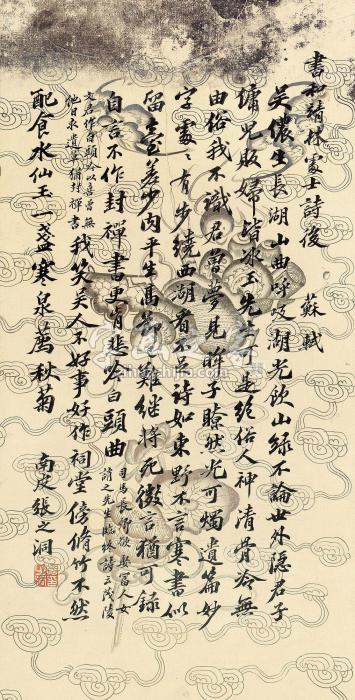 書和靖林處士詩後　蘇軾
吳儂生長湖山曲呼吸湖光飲山綠不論世外隱君子
傭兒販婦皆冰玉先生可是絕俗人神清骨冷無
由俗我不識君曾夢見眸子瞭然光可燭遺篇妙
字處處有步繞西湖看不足詩如東野不言寒書似
留臺差少肉平生高節已難繼將死微言猶可錄
自言不作封禪書更肯悲吟白頭曲
司馬長卿欲娶富人女
文君作白頭吟以
請之先生臨終詩云茂陵
他日求遺草猶喜曾無封禪書
我笑吳人不好事好作祠堂傍脩竹不然
配食水仙王一盞寒泉薦秋菊
南皮張之洞